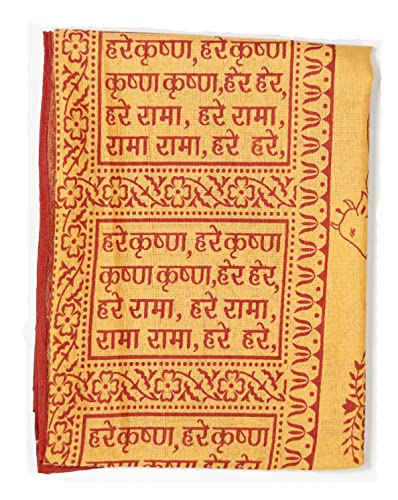 हरे कृष्ण, हरे कृष्ण
कृष्ण कृष्ण, हेर हेर,
हरे रामा, हरे रामा,
रामा रामा, हरे हरे,
हरे कृष्ण, हरे कृष्ण
कृष्ण कृष्ण, हेर हेर,
हरे रामा, हरे रामा,
रामा रामा, हरे हरे,
हरे कृष्ण, हरे कृष्ण